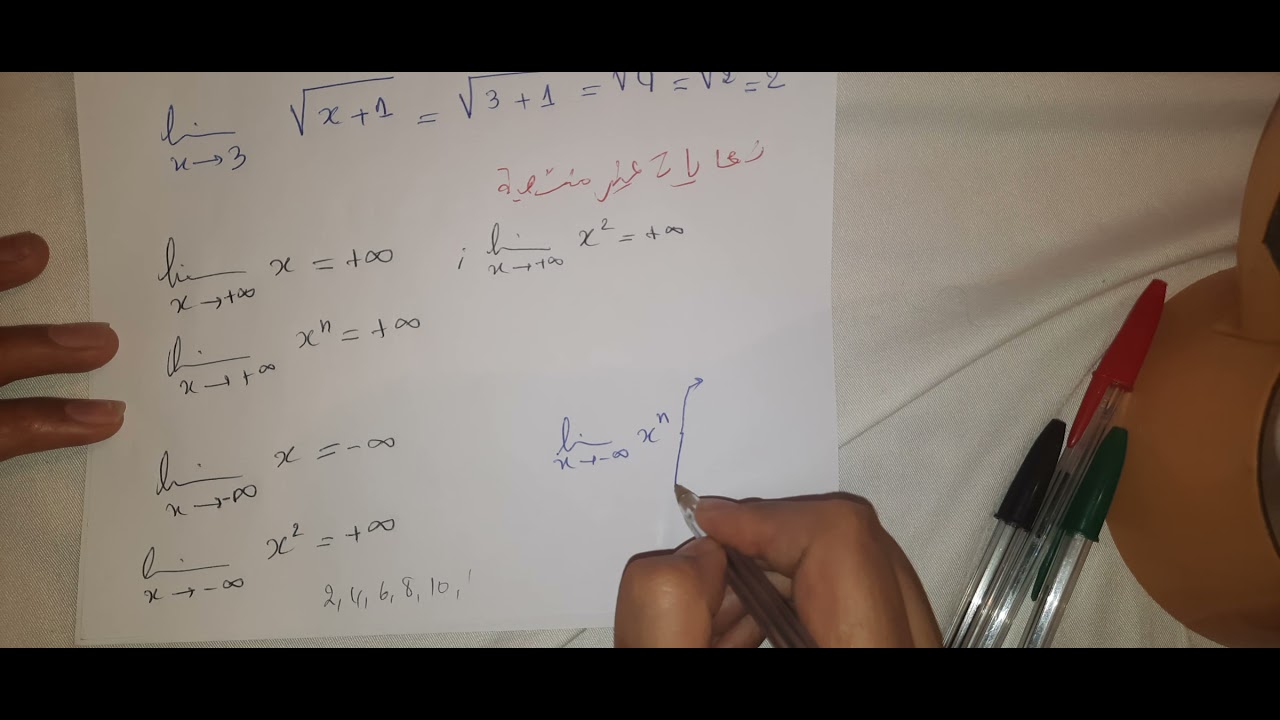 lim x→3 √x+1 = √3+1 = √4 = √2 = 2
نهايات غير منتهية
lim x→+∞ x = +∞ ; lim x→+∞ x² = +∞
lim x→+∞ xⁿ = +∞
lim x→-∞ x = -∞
lim x→-∞ xⁿ
lim x→-∞ x² = +∞
2, 4, 6, 8, 10,